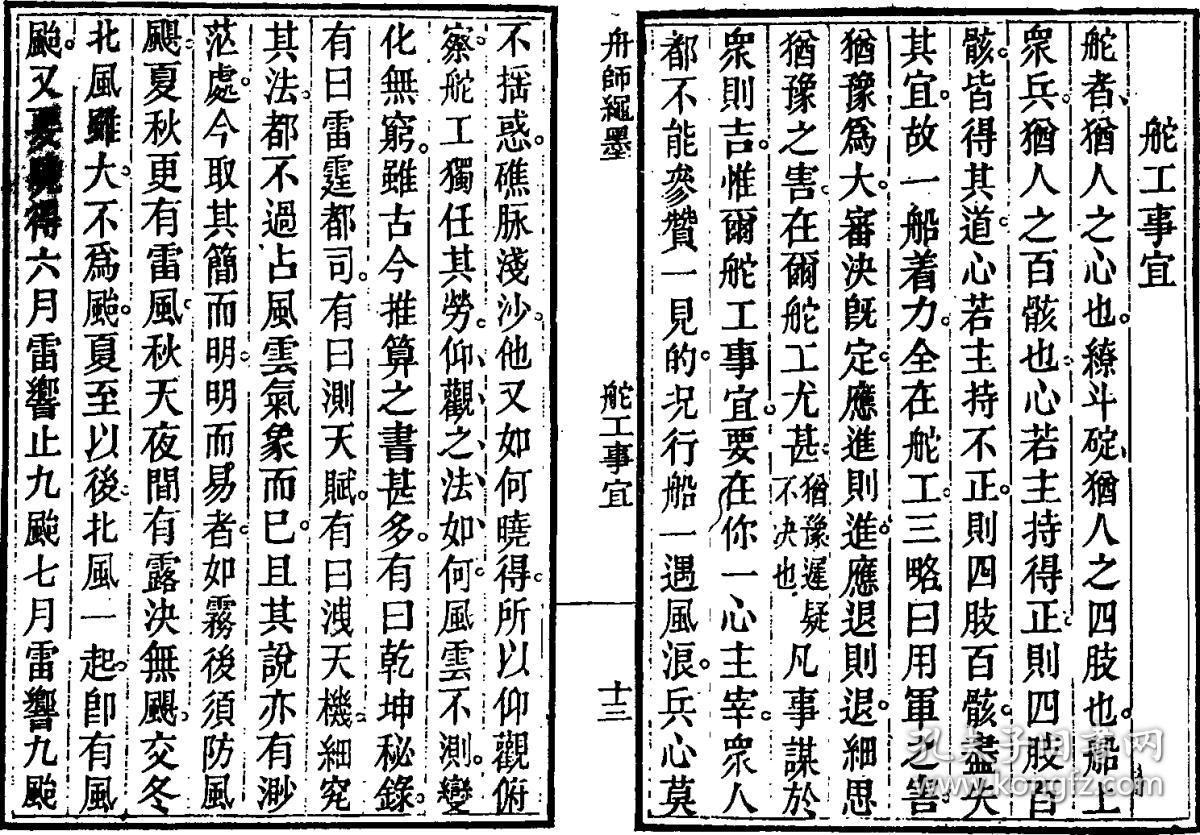 舵工事宜
舵者猶人之心也繚斗碇猶人之四肢也船上
衆兵猶人之百骸也心若主持得正則四肢百
骸皆得其道心若主持不正則四肢百骸盡失
其宜故一船着力全在舵工三略曰用軍之害
猶豫爲大審決旣定應進則進應退則退細思
猶豫之害在爾舵工尤甚猶豫遲疑不决也凡事謀於
衆則吉惟爾舵工事宜要在你一心主宰衆人
都不能參贊一見的況行船一遇風浪兵心莫
舟師繩墨
舵工事宜
十三
不揺惑礁脉淺沙他又如何曉得所以仰觀俯
察舵工獨任其勞仰觀之法如何風雲不測變
化無窮雖古今推算之書甚多有曰乾坤秘錄
有曰雷霆都司有曰測天賦有曰洩天機細究
其法都不過占風雲氣象而已且其說亦有渺
茫處今取其簡而明明而易者如霧後須防風
颶夏秋更有雷風秋天夜間有露決無颶交冬
北風雖大不爲颱夏至以後北風一起卽有風
颱又要曉得六月雷響止九颱七月雷響九颱
孔夫子旧书网
www.kongfz.com